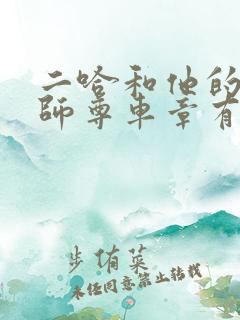 二哈和他的
師尊車章有
步侑菜
未经同意禁止转载